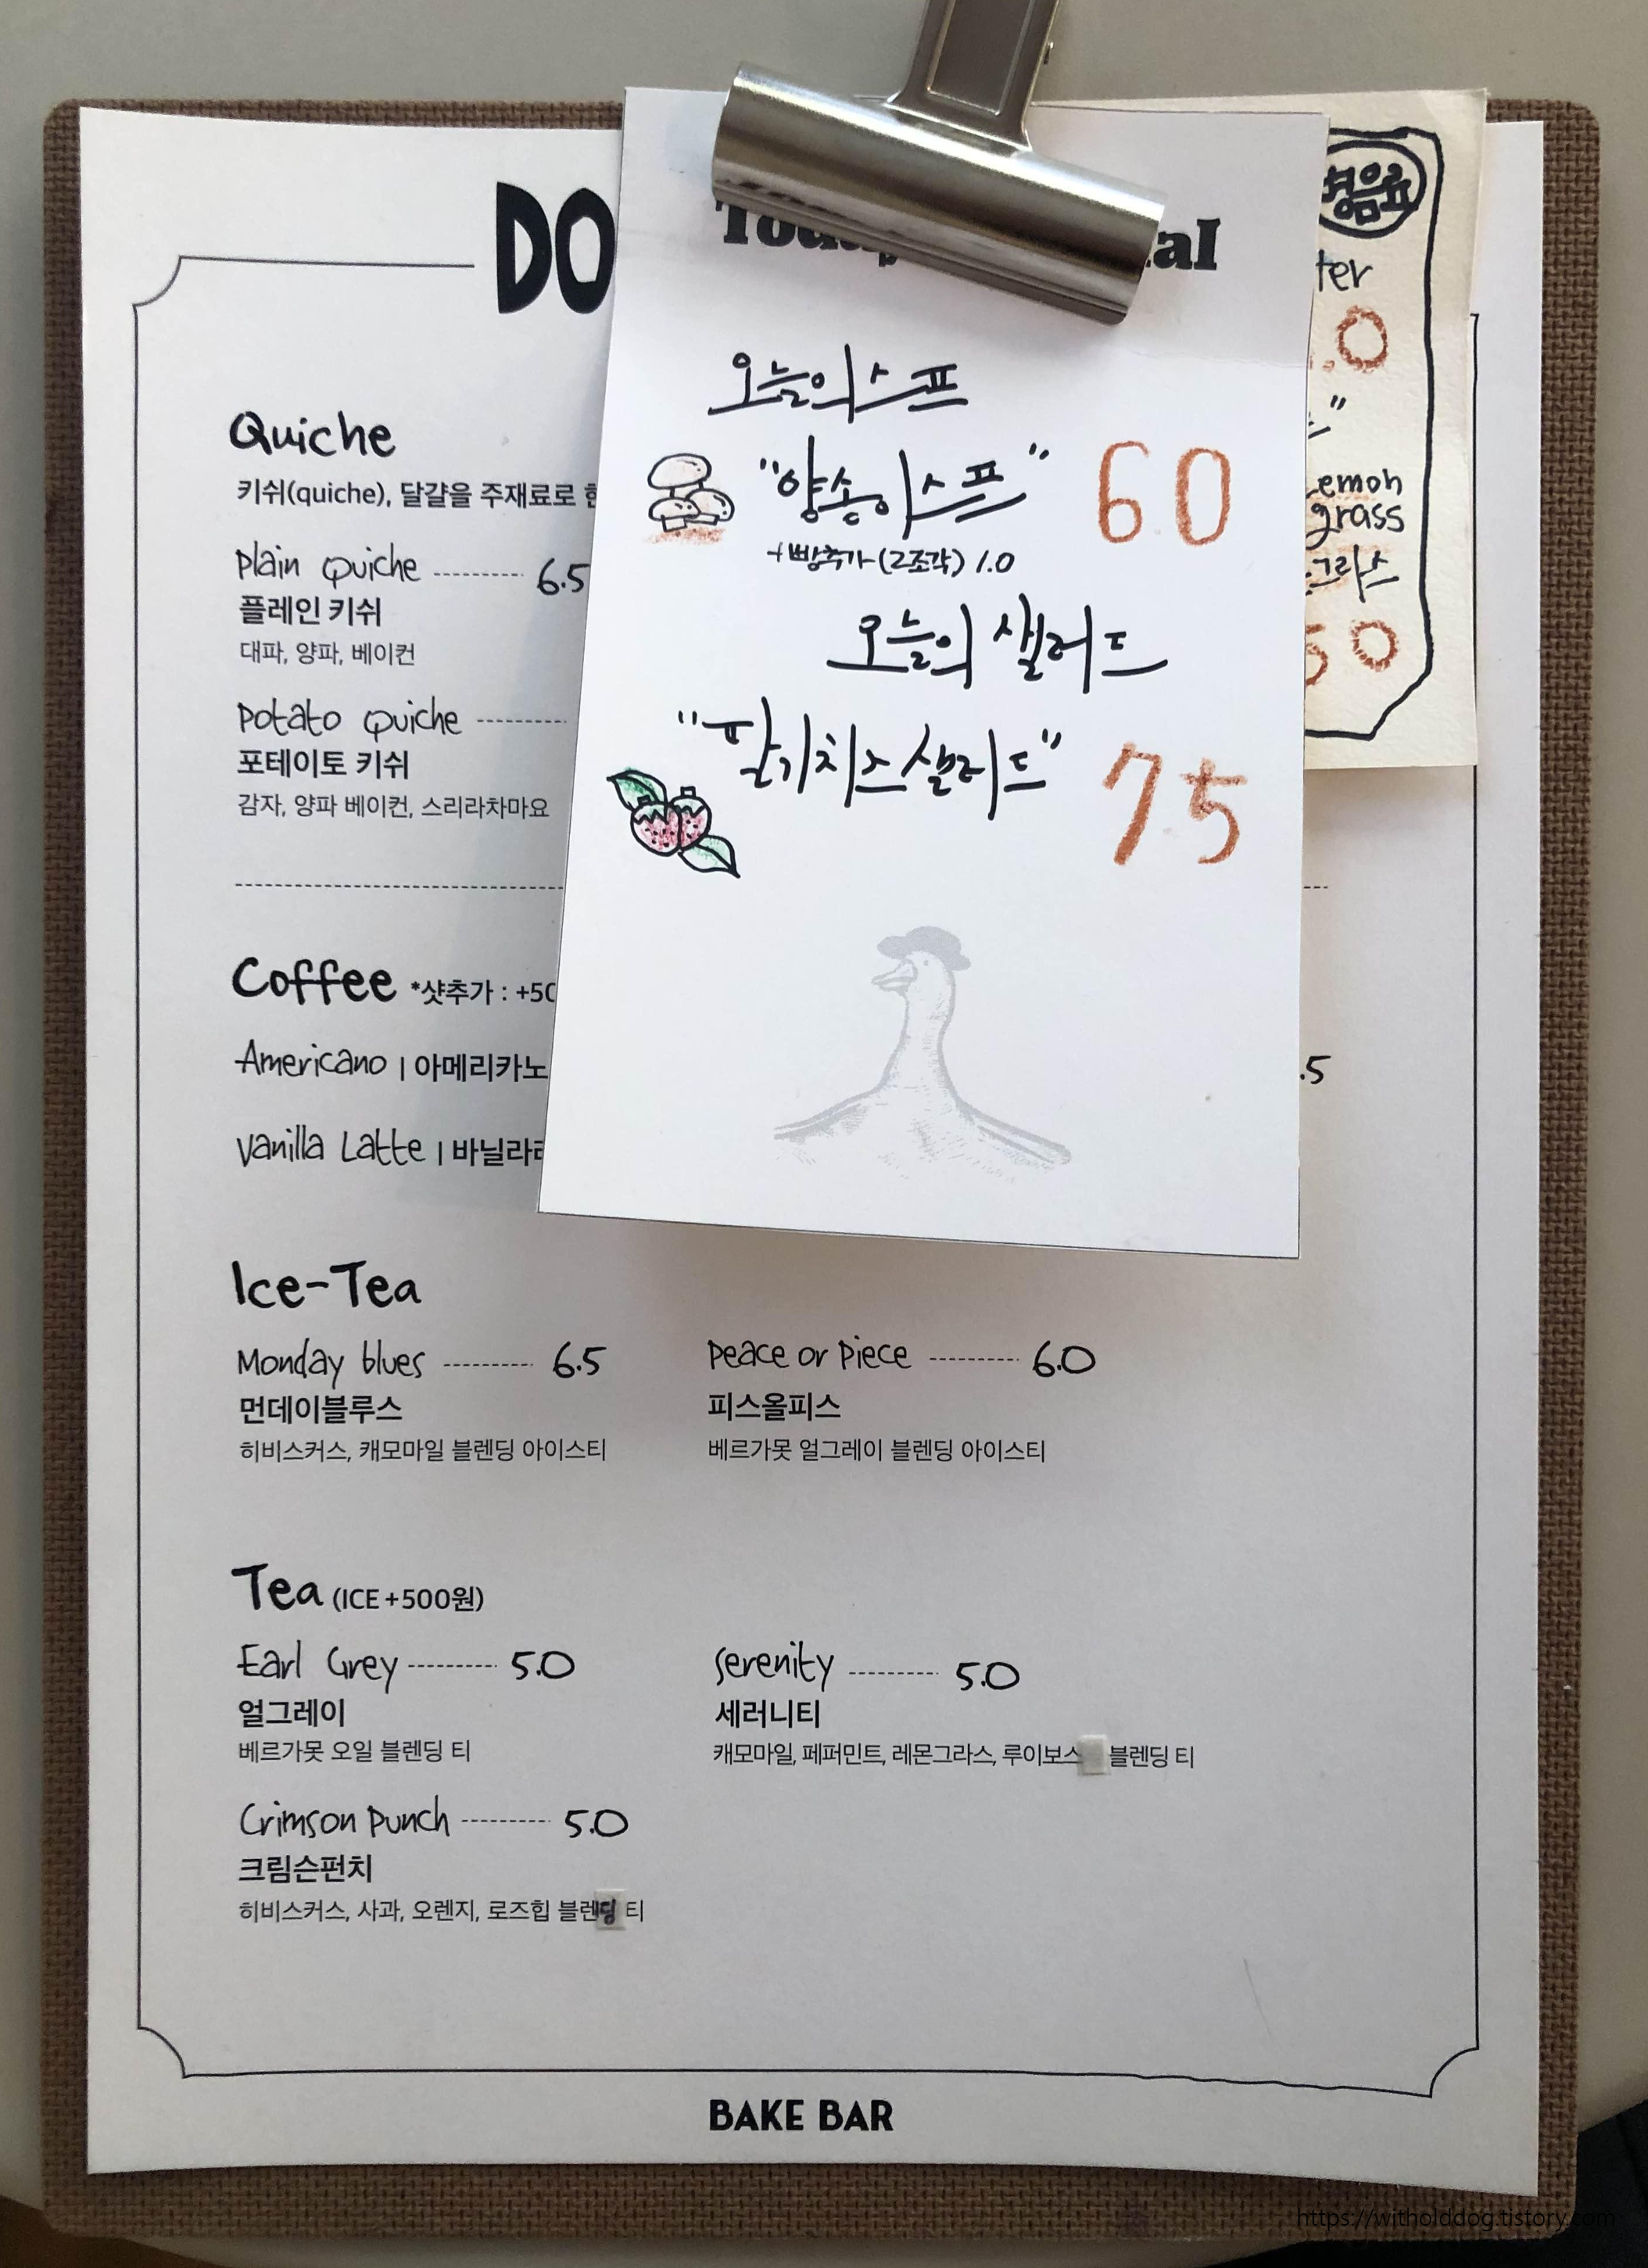 DO
Quiche
키쉬(quiche), 달걀을 주재료로
Plain Quiche ---------- 6.5
플레인 키쉬
대파, 양파, 베이컨
Potato Quiche ----------
포테이토 키쉬
감자, 양파 베이컨, 스리라차마요
Coffee *샷추가 : +50
Americano | 아메리카노
.5
Vanilla Latte | 바닐라
Today
오늘의 스프
"양송이스프" 6.0
+빵추가(2조각) 1.0
오늘의 샐러드
"딸기치즈샐러드" 7.5
병음료
.0
Lemon
grass
50
Ice-Tea
Monday blues ---------- 6.5
먼데이블루스
히비스커스, 캐모마일 블렌딩 아이스티
Peace or Piece ---------- 6.0
피스올피스
베르가못 얼그레이 블렌딩 아이스티
Tea (ICE +500원)
Earl Grey ---------- 5.0
얼그레이
베르가못 오일 블렌딩 티
Serenity ---------- 5.0
세러니티
캐모마일, 페퍼민트, 레몬그라스, 루이보스 블렌딩 티
Crimson Punch ---------- 5.0
크림슨펀치
히비스커스, 사과, 오렌지, 로즈힙 블렌딩 티
BAKE BAR
https://witholddog.tistory.com